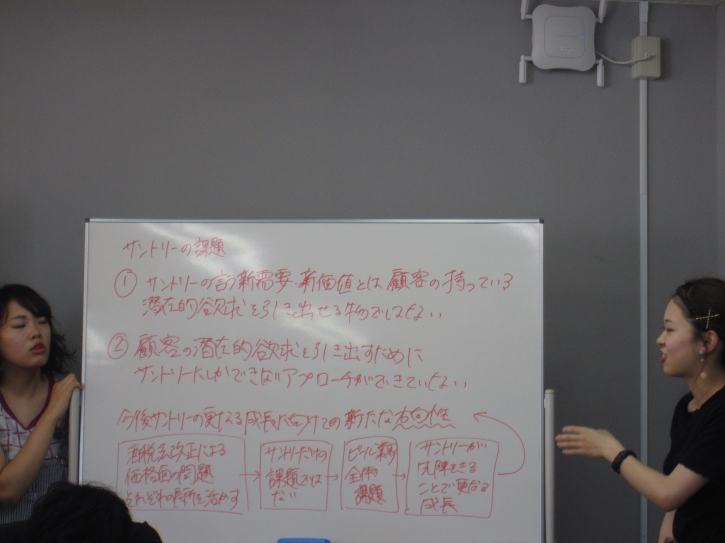 サントリーの課題
① サントリーの言う新需要・新価値とは 顧客の持っている
潜在的欲求を引き出せる物ではない
② 顧客の潜在的欲求を引き出すために
サントリーにしかできないアプローチができていない
今後サントリーの更なる成長に向けての新たな方向性
酒税法改正による
価格面の問題
それぞれの長所を活かす
サントリーだけの
課題ではない
ビール業界
全体の
課題
サントリーが
先陣をきる
ことで更なる
成長